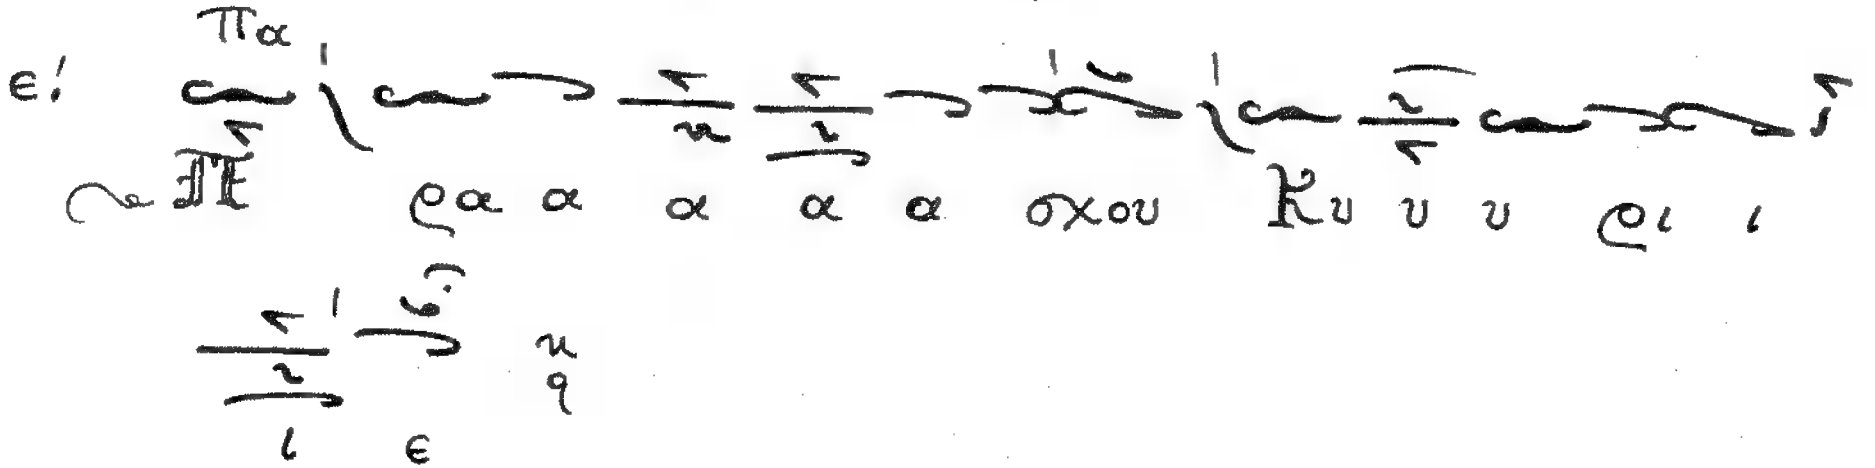 Πα
ε!
Πα ρα α α α α σχου Κυ υ υ ρι ι
ι ε